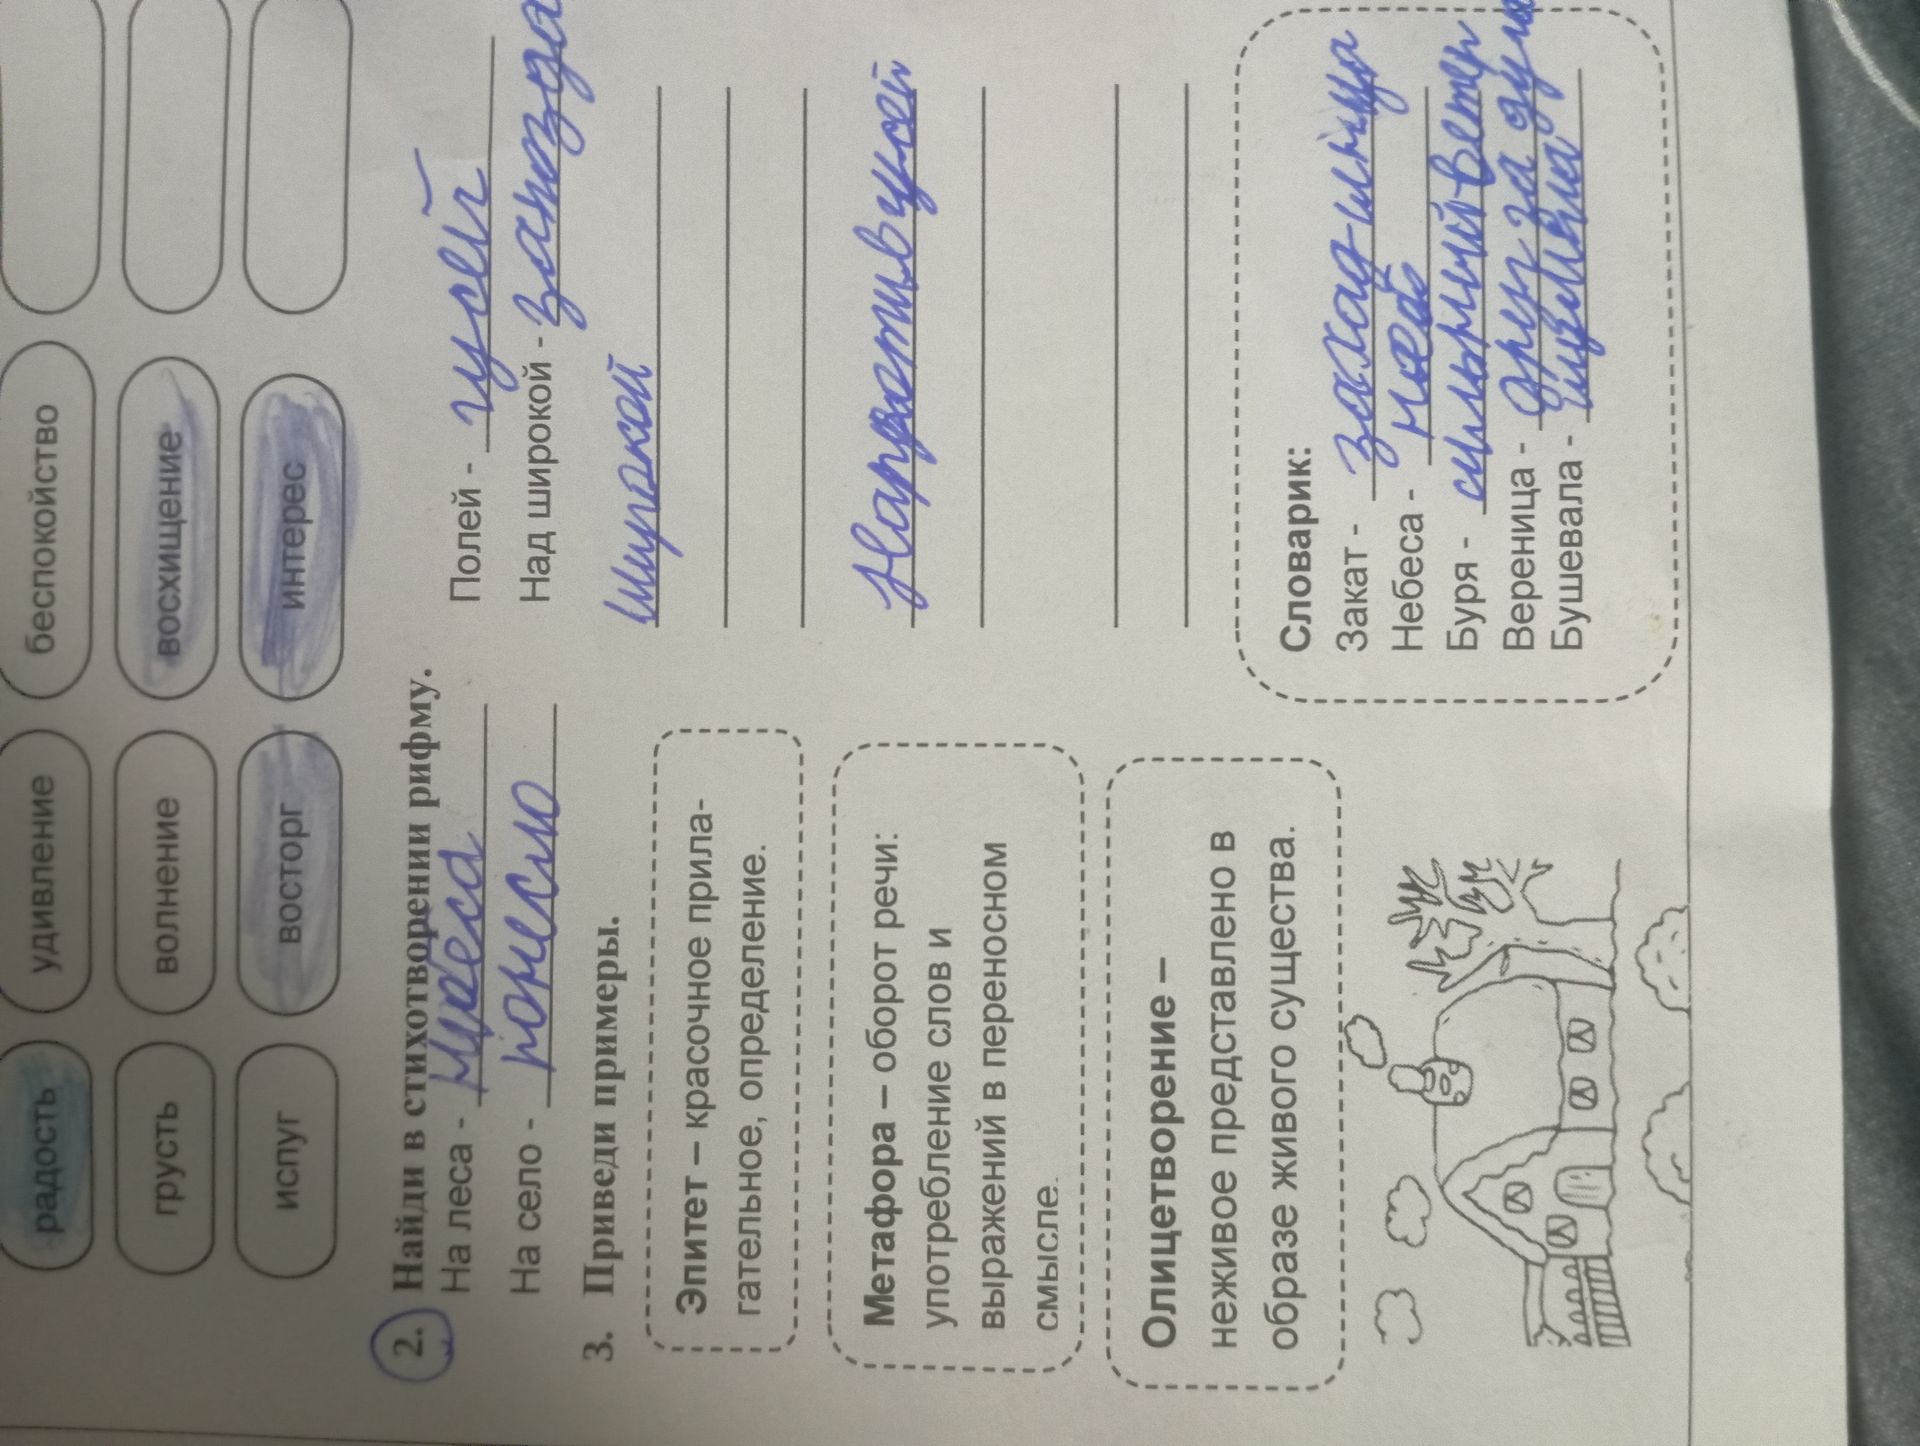 радость
удивление
беспокойство
грусть
волнение
восхищение
испуг
восторг
интерес
2. Найди в стихотворении рифму.
На леса -
Полей - гусей
На село - понесло
Над широкой -
3. Приведи примеры.
широкой
Эпитет – красочное прила-
гательное, определение.
Метафора – оборот речи:
употребление слов и
выражений в переносном
смысле.
Олицетворение –
неживое представлено в
образе живого существа.
Словарик:
Закат - заход
Небеса -
Буря - сильный ветер
Вереница - друг за
Бушевала -